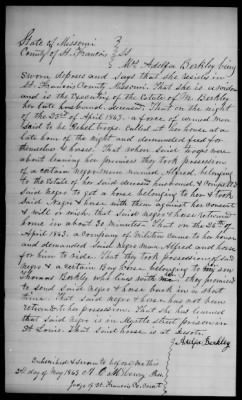 State of Missouri }
County of St. Francois } SS
Mrs Adelfa Berkley being
sworn deposes and says that she resides in
St. Francois County Missouri. That she is a widow
and is the Executrix of the Estate of M. Berkley
her late husband deceased. That on the night
of the 23rd of April 1863. a force of armed men
said to be Rebel troops called at her house at a
late hour of the night and demanded feed for
themselves & horses. That when said troops were
about leaving her premises they took possession
of a certain negro man named Alfred, belonging
to the estate of her said deceased husband, & compelled
said Negro to get a horse belonging to her & took
said Negro & horse with them against her consent
& will or wish. that said negro & horse returned
home in about 30 minutes. That on the 25th of
April 1863. a company of militia came to her house
and demanded said Negro man Alfred and horse
for him to ride. That they took possession of said
negro & a certain Bay horse belonging to my son
Thomas Berkley who lives with me. they promised
to send said negro & horse back in a short
time. That said negro & horse has not been
returned to her possession. That she has learned
that said negro is in Myrtle street prison in
St Louis. That said horse is at Desoto.
Adelfa Berkley
Subscribed & sworn to before me this
2nd day of May 1863
Judge of St Francois Co. Court